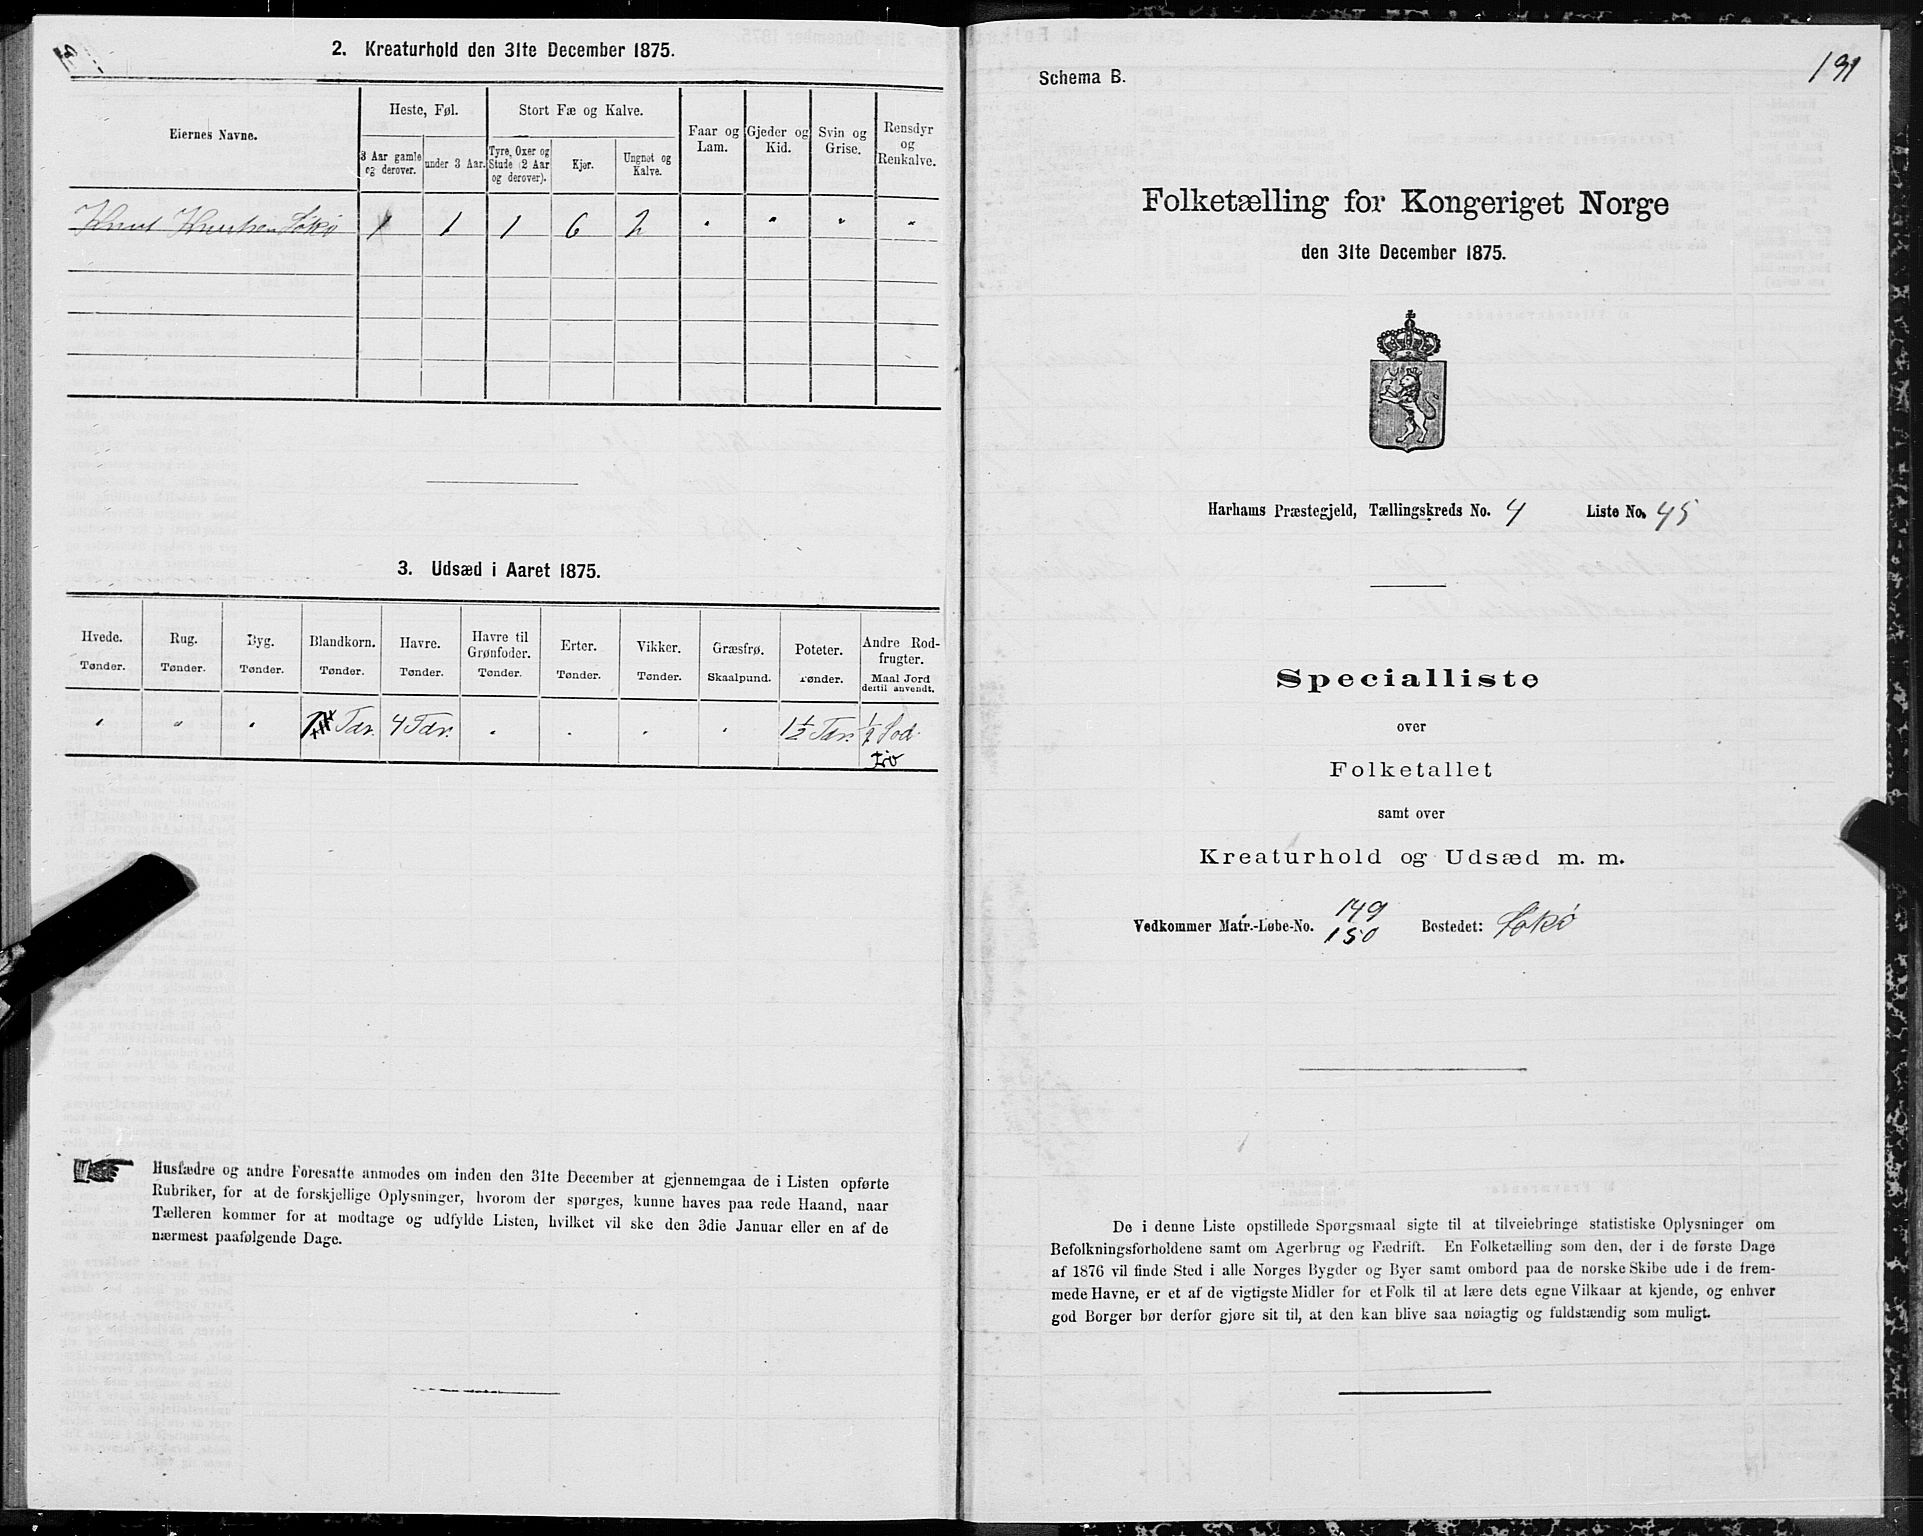 2. Kreaturhold den 31te December 1875.
Eiernes Navne.
Heste, Føl.
Stort Fæ og Kalve.
Faar og Lam.
Gjeder og Kid.
Svin og Grise.
Rensdyr og Renkalve.
3 Aar gamle og derover.
under 3 Aar.
Tyre, Oxer og Stude (2 Aar og derover).
Kjør.
Ungnøt og Kalve.
Knut Knutsen Løkø 1 1 1 6 2 " " " "
3. Udsæd i Aaret 1875.
Hvede. Rug. Byg. Blandkorn. Havre. Havre til Grønfoder. Erter. Vikker. Græsfrø. Poteter. Andre Rodfrugter.
Tønder. Tønder. Tønder. Tønder. Tønder. Tønder. Tønder. Tønder. Skaalpund. Tønder. Maal Jord dertil anvendt.
" " " Tdr. 4 Tdr. " " " " 1½ Tdr.
Husfædre og andre Foresatte anmodes om inden den 31te December at gjennemgaa de i Listen opførte
Rubriker, for at de forskjellige Oplysninger, hvorom der spørges, kunne haves paa rede Haand, naar
Tælleren kommer for at modtage og udfylde Listen, hvilket vil ske den 3die Januar eller en af de
nærmest paafølgende Dage.
191
Schema B.
Folketælling for Kongeriget Norge
den 31te December 1875.
Harhams Præstegjeld, Tællingskreds No. 4 Liste No. 45
Specialliste
over
Folketallet
samt over
Kreaturhold og Udsæd m. m.
149
Vedkommer Matr.-Løbe-No. Bostedet: Løkø
150
De i denne Liste opstillede Spørgsmaal sigte til at tilveiebringe statistiske Oplysninger om
Befolkningsforholdene samt om Agerbrug og Fædrift. En Folketælling som den, der i de første Dage
af 1876 vil finde Sted i alle Norges Bygder og Byer samt ombord paa de norske Skibe ude i de frem-
mede Havne, er et af de vigtigste Midler for et Folk til at lære dets egne Vilkaar at kjende, og enhver
god Borger bør derfor gjøre sit til, at den kan blive saa nøiagtig og fuldstændig som muligt.